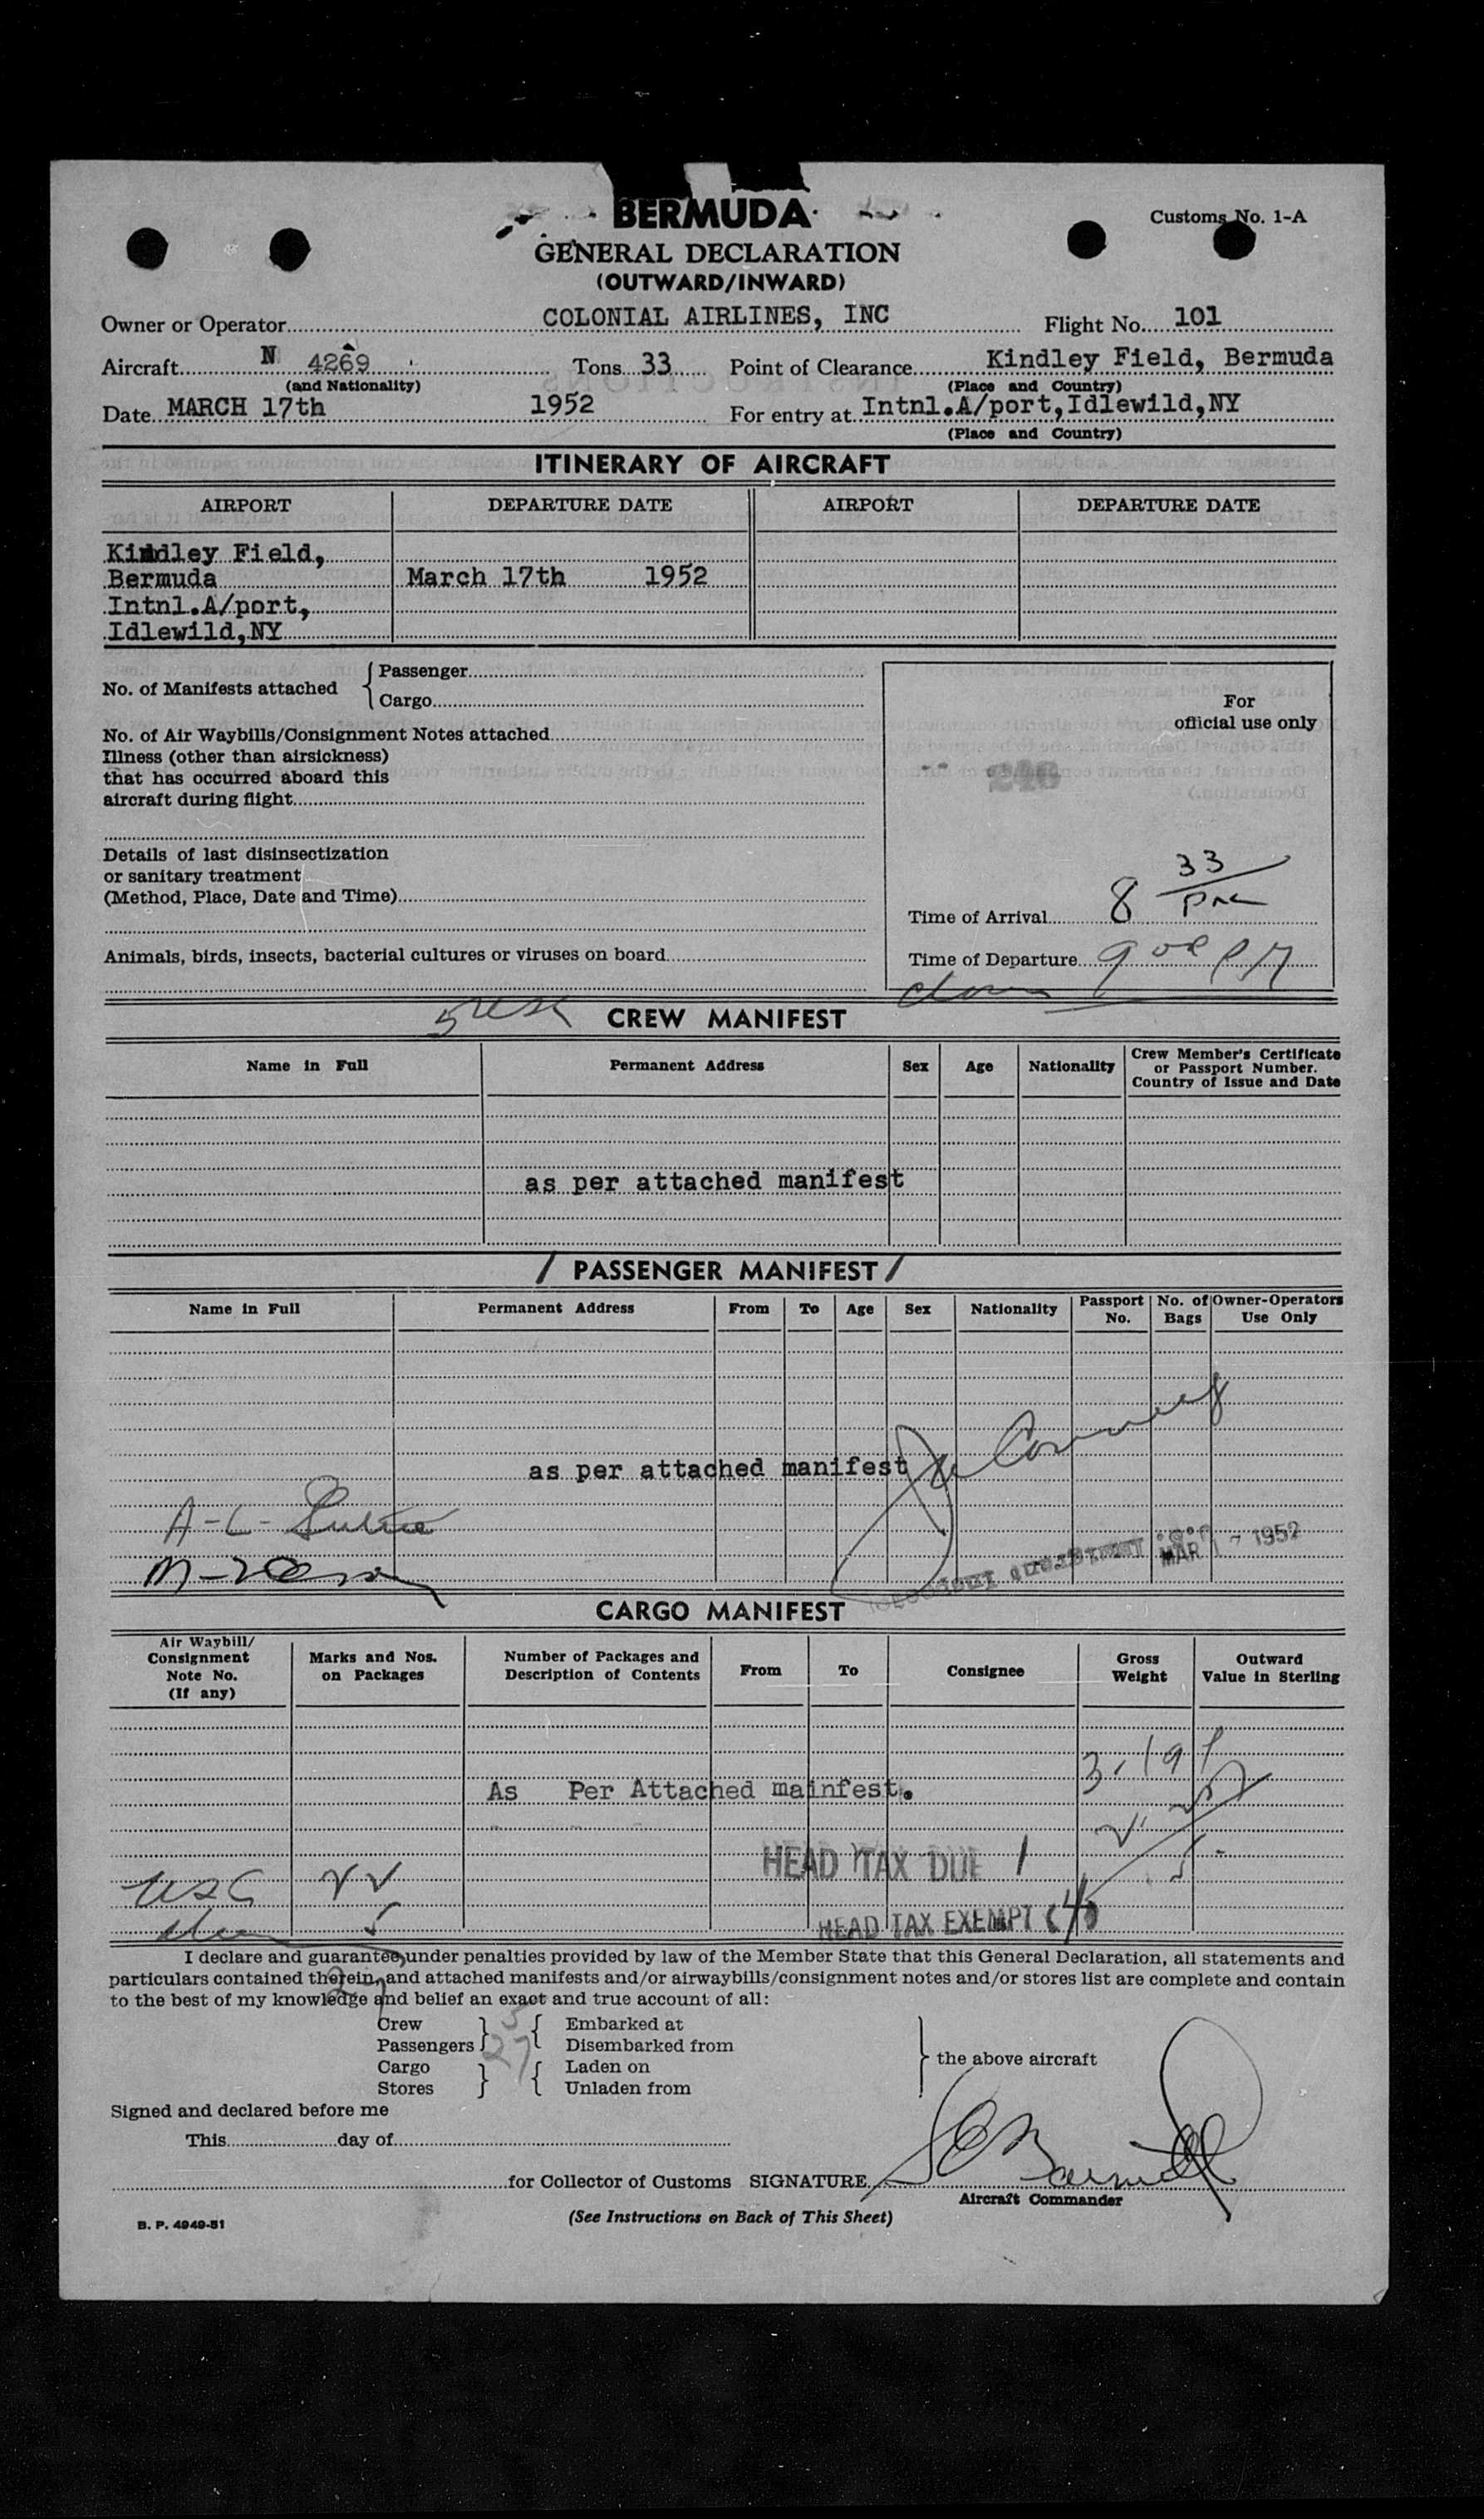 BERMUDA
Customs No. 1-A
GENERAL DECLARATION
(OUTWARD/INWARD)
Owner or Operator COLONIAL AIRLINES, INC Flight No. 101
Aircraft N 4269 Tons 33 Point of Clearance Kindley Field, Bermuda
(and Nationality) (Place and Country)
Date MARCH 17th 1952 For entry at Intnl.A/port,Idlewild,NY
(Place and Country)
ITINERARY OF AIRCRAFT
AIRPORT DEPARTURE DATE AIRPORT DEPARTURE DATE
Kindley Field,
Bermuda March 17th 1952
Intnl.A/port,
Idlewild,NY
No. of Manifests attached { Passenger
Cargo
For
official use only
No. of Air Waybills/Consignment Notes attached
Illness (other than airsickness)
that has occurred aboard this
aircraft during flight
246
Details of last disinsectization
or sanitary treatment
(Method, Place, Date and Time)
Time of Arrival 8 33 PM
Animals, birds, insects, bacterial cultures or viruses on board
Time of Departure 9 00 PM
CREW MANIFEST
Name in Full Permanent Address Sex Age Nationality Crew Member's Certificate
or Passport Number.
Country of Issue and Date
as per attached manifest
/ PASSENGER MANIFEST /
Name in Full Permanent Address From To Age Sex Nationality Passport No. No. of Bags Owner-Operators Use Only
as per attached manifest
A-L-
MAR 17 1952
CARGO MANIFEST
Air Waybill/
Consignment
Note No.
(If any)
Marks and Nos.
on Packages
Number of Packages and
Description of Contents
From To Consignee Gross
Weight
Outward
Value in Sterling
As Per Attached mainfest.
HEAD TAX DUE 1
USC 22
5
HEAD TAX EXEMPT (4)
I declare and guarantee, under penalties provided by law of the Member State that this General Declaration, all statements and
particulars contained therein, and attached manifests and/or airwaybills/consignment notes and/or stores list are complete and contain
to the best of my knowledge and belief an exact and true account of all:
Crew 5 Embarked at
Passengers 27 Disembarked from
the above aircraft
Cargo Laden on
Stores Unladen from
Signed and declared before me
This day of
for Collector of Customs SIGNATURE
Aircraft Commander
(See Instructions on Back of This Sheet)
B. P. 4949-51